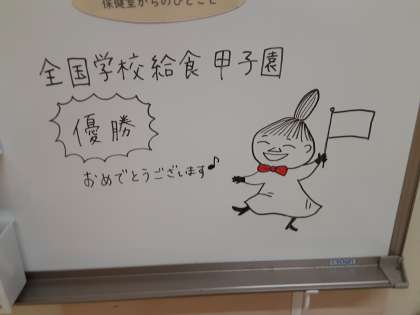 保健室からのひとこと
全国学校給食甲子園
優勝
おめでとうございます♪